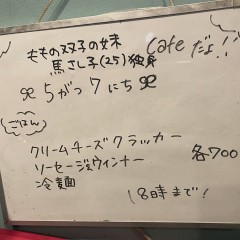 ももの双子の妹
馬さし子(25)独身
Cafeだよ!!
5がつ7にち
ごはん
クリームチーズクラッカー
ソーセージウィンナー
冷麺
各700
18時まで!